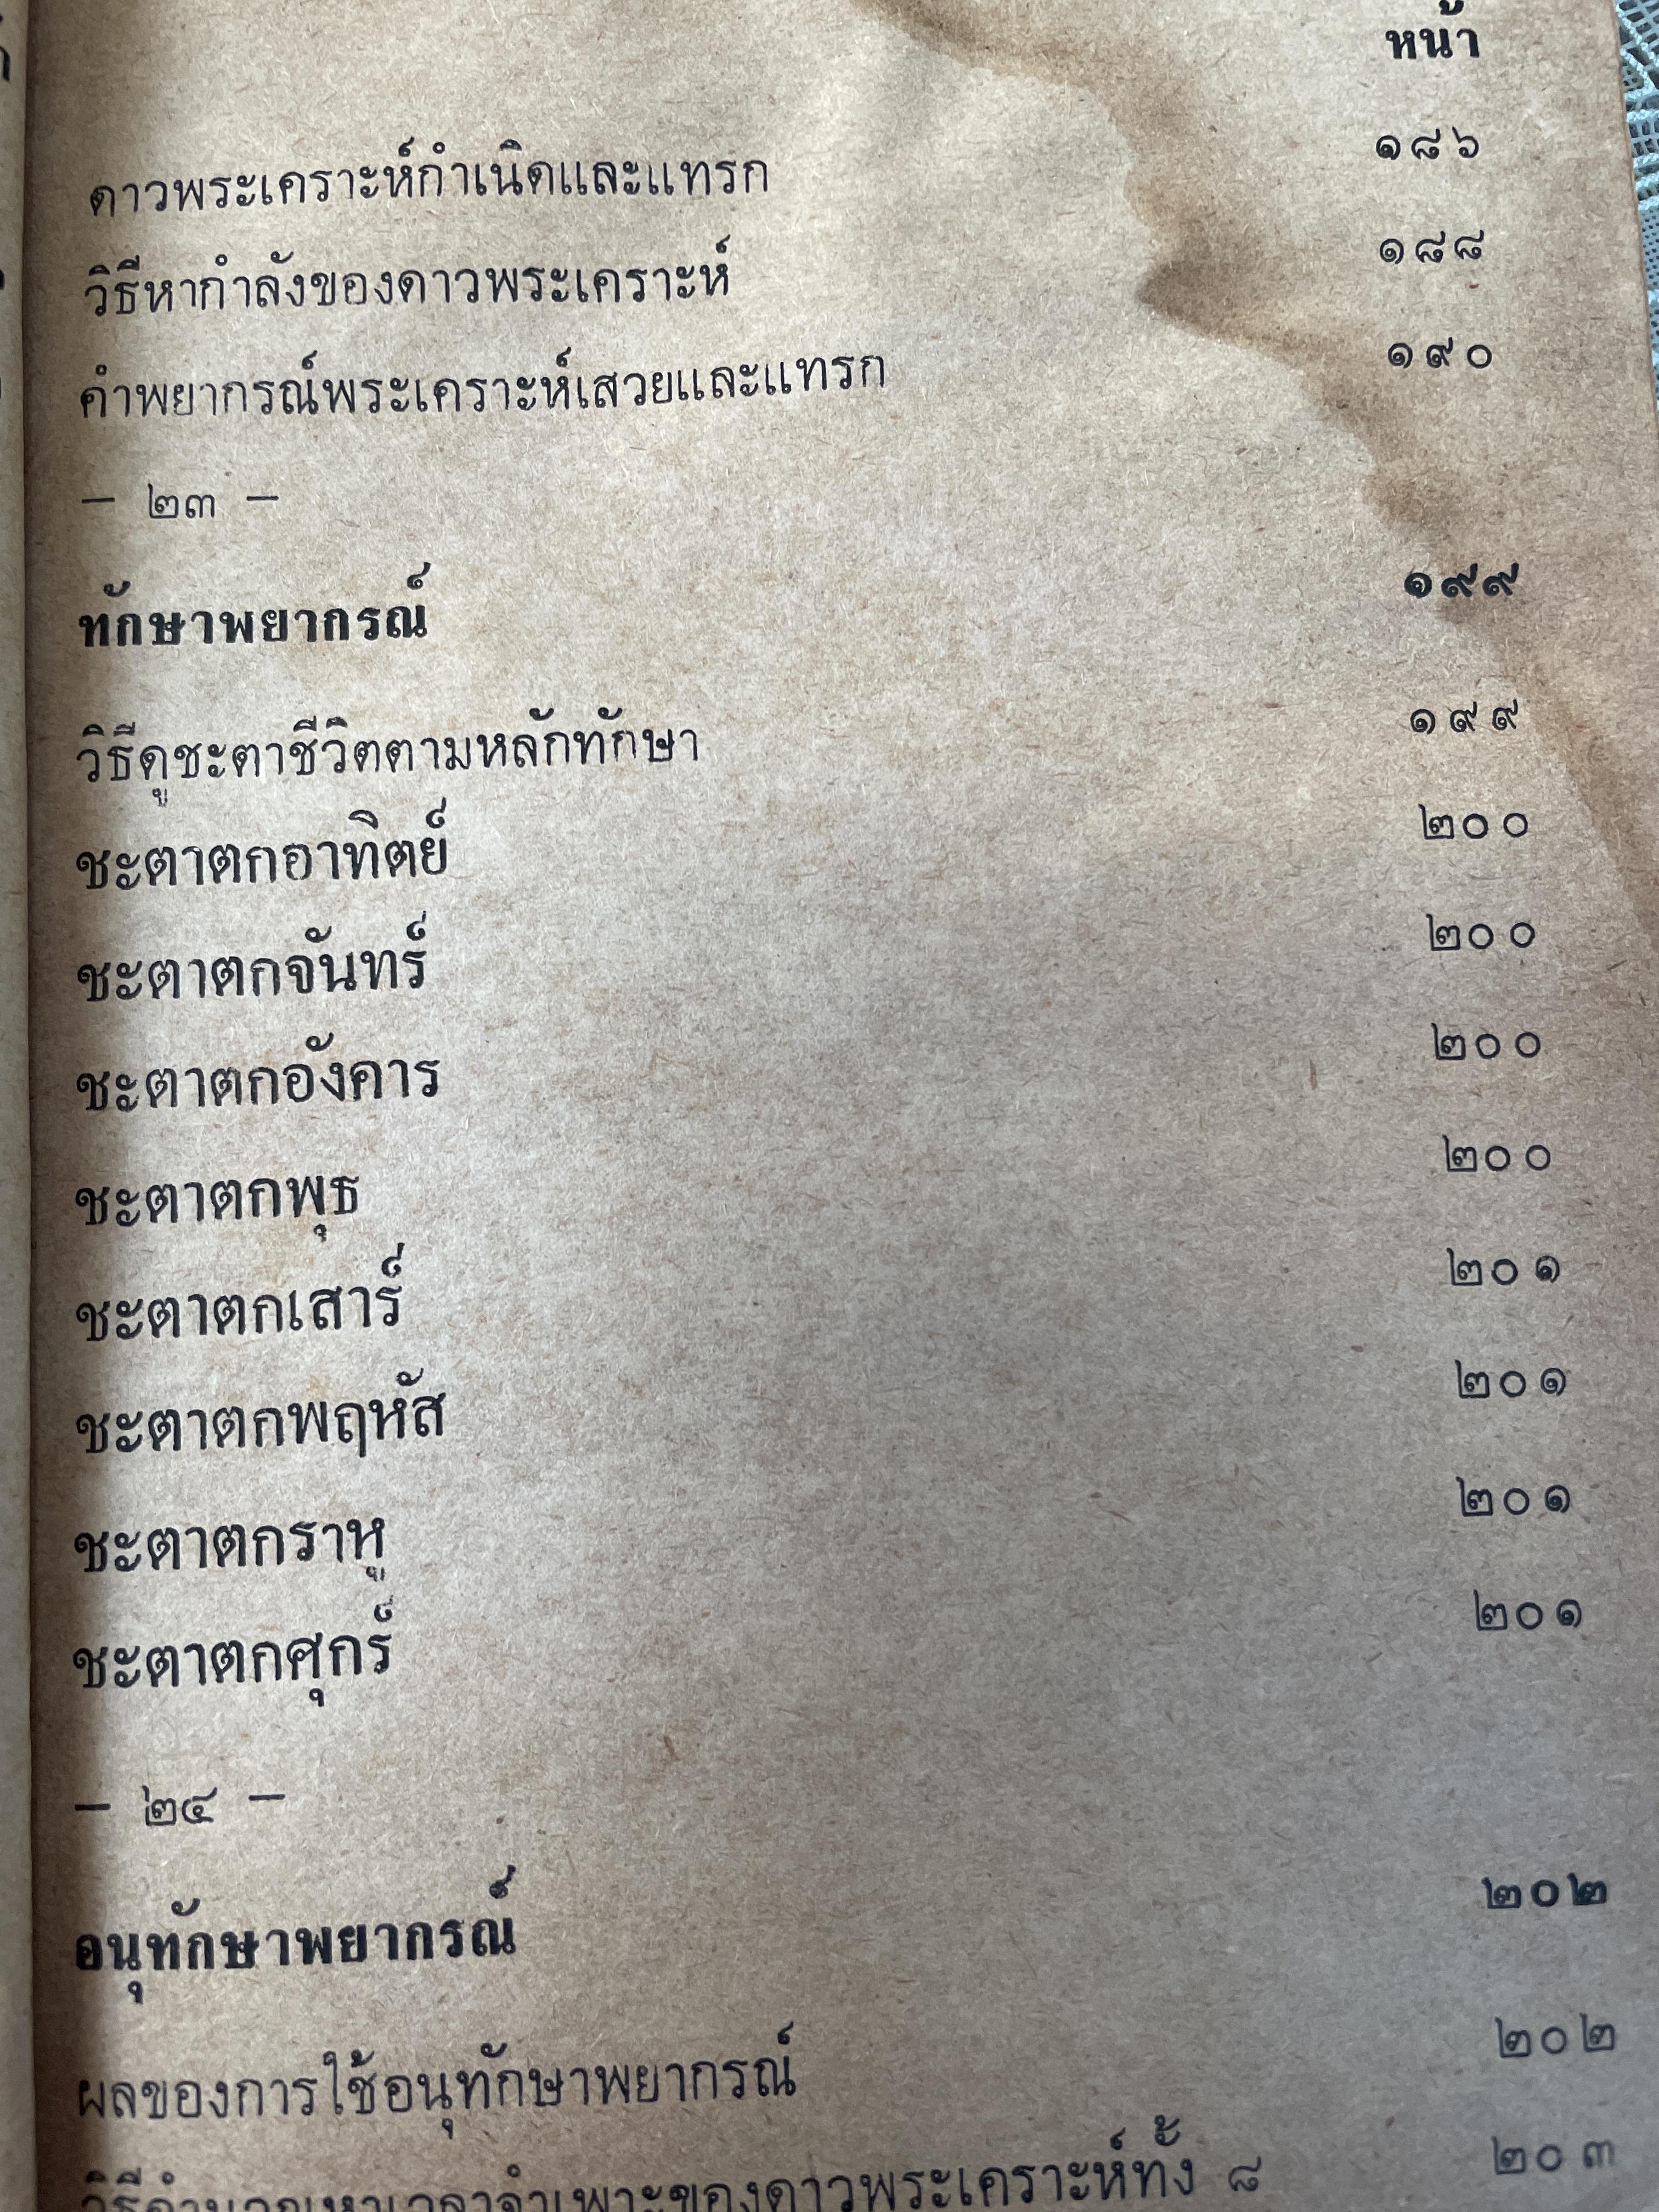 หน้า
ดาวพระเคราะห์กำเนิดและแทรก ๑๘๖
วิธีหากำลังของดาวพระเคราะห์ ๑๘๘
คำพยากรณ์พระเคราะห์เสวยและแทรก ๑๙๐
— ๒๓ —
ทักษาพยากรณ์ ๑๙๙
วิธีดูชะตาชีวิตตามหลักทักษา ๑๙๙
ชะตาตกอาทิตย์ ๒๐๐
ชะตาตกจันทร์ ๒๐๐
ชะตาตกอังคาร ๒๐๐
ชะตาตกพุธ ๒๐๐
ชะตาตกเสาร์ ๒๐๑
ชะตาตกพฤหัส ๒๐๑
ชะตาตกราหู ๒๐๑
ชะตาตกศุกร์ ๒๐๑
— ๒๔ —
อนุทักษาพยากรณ์ ๒๐๒
ผลของการใช้อนุทักษาพยากรณ์ ๒๐๒
วิธีคำนวณหาเวลาจำเพาะของดาวพระเคราะห์ทั้ง ๘ ๒๐๓